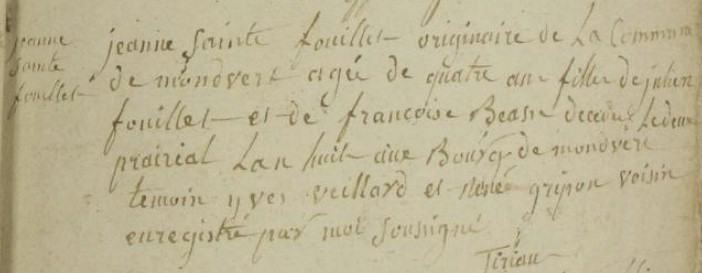 jeanne
sainte
fouillet
jeanne sainte fouillet originaire de La Commune
de mondvert agée de quatre ans fille de julien
fouillet et de francoise Beasse decedee Le deux
prairial Lan huit aux Bourg de mondvert
temoin yves veillard et rené gripon voisin
enregistré par moi soussigné